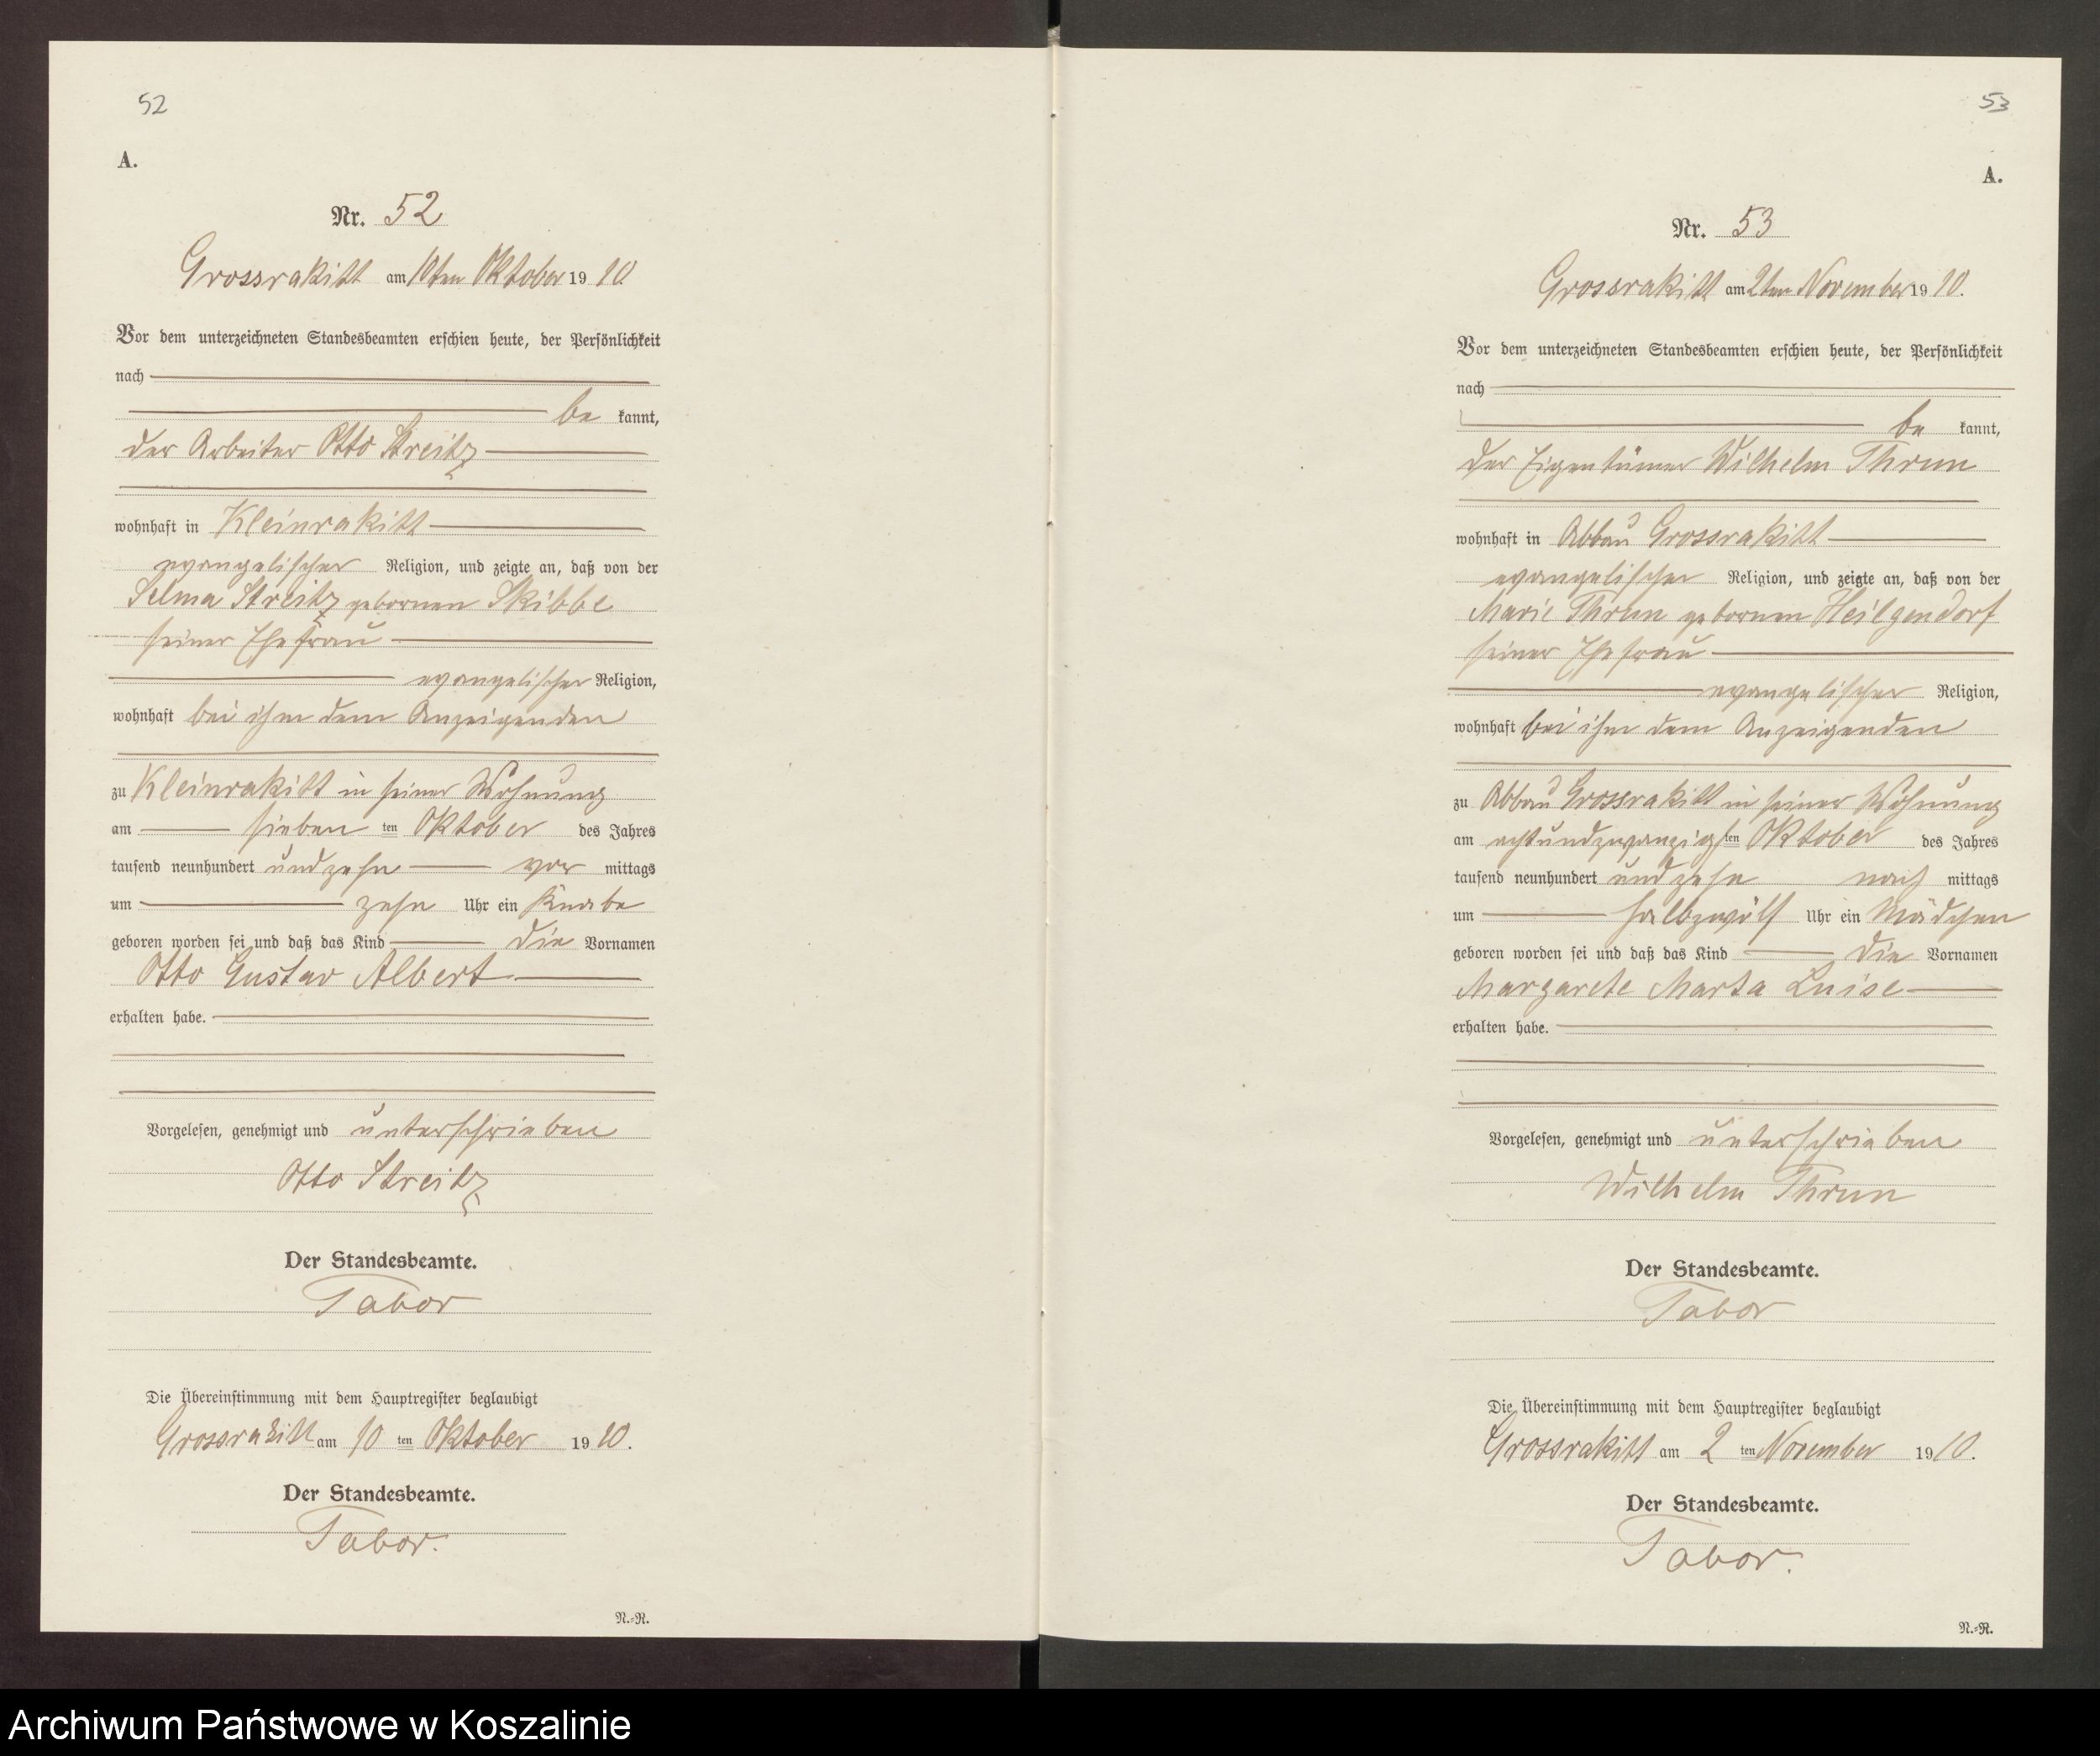 52
A.
Nr. 52
Grossrakitt am 10ten Oktober 1910
Vor dem unterzeichneten Standesbeamten erschien heute, der Persönlichkeit
nach
be kannt,
der Arbeiter Otto Streitz
wohnhaft in Kleinrakitt
evangelischer Religion, und zeigte an, daß von der
Selma Streitz gebornen Skibbe
seiner Ehefrau
evangelischer Religion,
wohnhaft bei ihm dem Anzeigenden
zu Kleinrakitt in seiner Wohnung
am sieben ten Oktober des Jahres
tausend neunhundert undzehn vor mittags
um zehn Uhr ein Knabe
geboren worden sei und daß das Kind die Vornamen
Otto Gustav Albert
erhalten habe.
Vorgelesen, genehmigt und unterschrieben
Otto Streitz
Der Standesbeamte.
Tabor
Die Übereinstimmung mit dem Hauptregister beglaubigt
Grossrakitt am 10 ten Oktober 1910.
Der Standesbeamte.
Tabor.
N.=R.
53
A.
Nr. 53
Grossrakitt am 2ten November 1910.
Vor dem unterzeichneten Standesbeamten erschien heute, der Persönlichkeit
nach
be kannt,
der Eigentümer Wilhelm Thrun
wohnhaft in Abbau Grossrakitt
evangelischer Religion, und zeigte an, daß von der
Marie Thrun gebornen Heilgendorf
seiner Ehefrau
evangelischer Religion,
wohnhaft bei ihm dem Anzeigenden
zu Abbau Grossrakitt in seiner Wohnung
am achtundzwanzigsten Oktober des Jahres
tausend neunhundert undzehn nach mittags
um halbzwölf Uhr ein Mädchen
geboren worden sei und daß das Kind die Vornamen
Margarete Marta Luise
erhalten habe.
Vorgelesen, genehmigt und unterschrieben
Wilhelm Thrun
Der Standesbeamte.
Tabor
Die Übereinstimmung mit dem Hauptregister beglaubigt
Grossrakitt am 2 ten November 1910.
Der Standesbeamte.
Tabor.
N.=R.
Archiwum Państwowe w Koszalinie